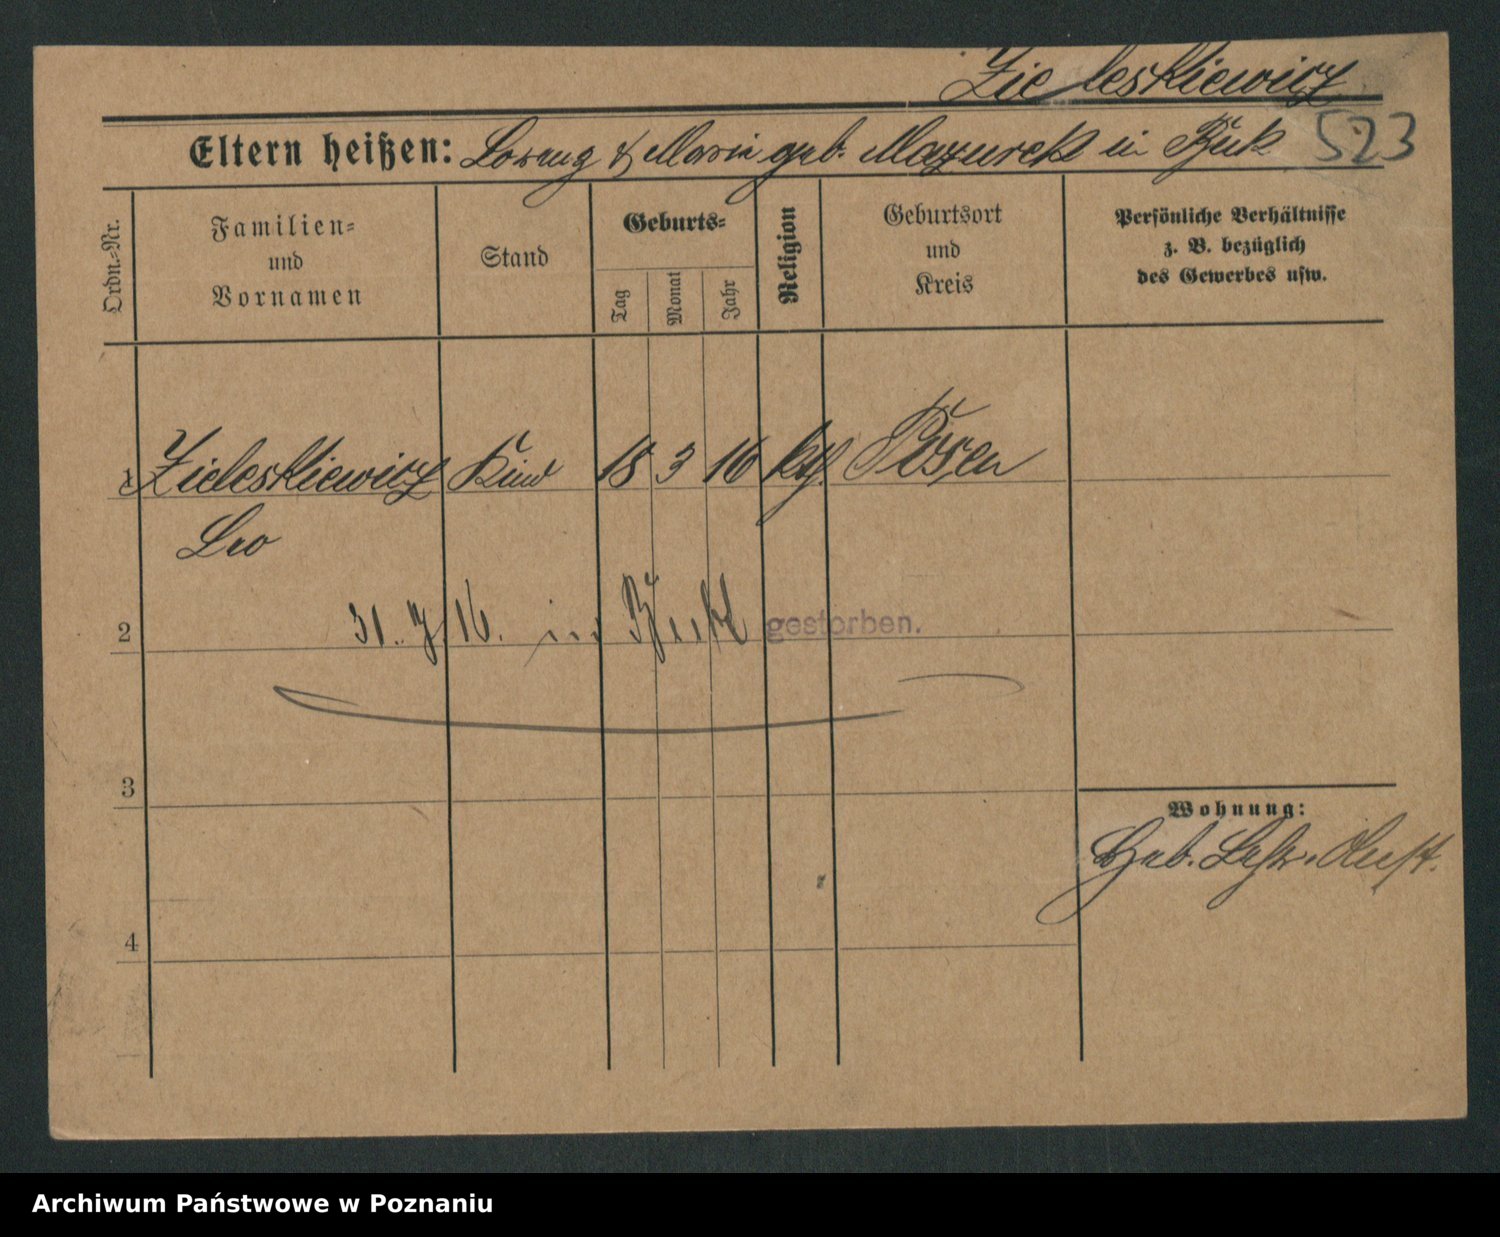 Zieleskiewicz
Eltern heißen: Lorenz & Maria geb. Mazurek in Buk 523
Ordn.-Nr.
Familien-
und
Vornamen
Stand
Geburts-
Tag
Monat
Jahr
Religion
Geburtsort
und
Kreis
Persönliche Verhältnisse
z. B. bezüglich
des Gewerbes usw.
1 Zieleskiewicz Kind 18 3 16 kth. Posen
Leo
2 31. 7. 16. in Buk gestorben.
3
Wohnung:
Heb. Lehr.
4
Archiwum Państwowe w Poznaniu